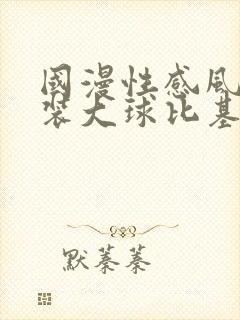 國漫性感風
裝大球比基
默蓁蓁